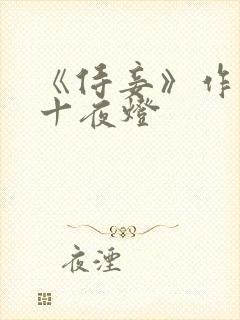 《侍妾》作
十夜燈
夜湮